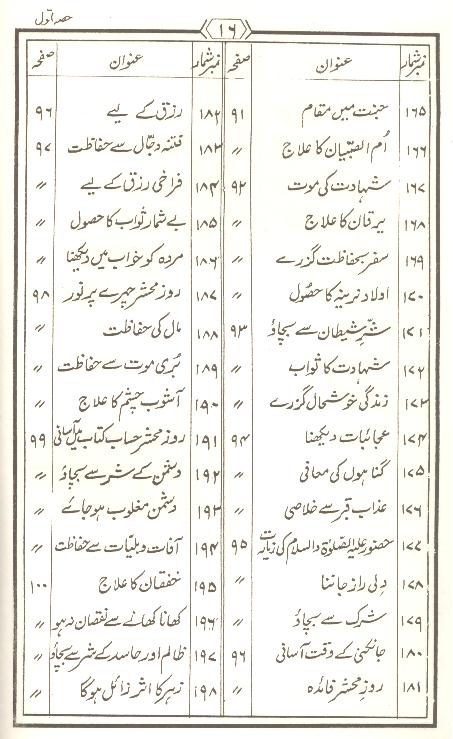 حصہ اوّل
۱۶
نمبر شمار عنوان صفحہ نمبر شمار عنوان صفحہ
۱۶۵ جنت میں مقام ۹۱ ۱۸۲ رزق کے لیے ۹۶
۱۶۶ اُم الصّبیان کا علاج ״ ۱۸۳ فتنہ دجّال سے حفاظت ۹۷
۱۶۷ شہادت کی موت ۹۲ ۱۸۴ فراخیِ رزق کے لیے ״
۱۶۸ یرقان کا علاج ״ ۱۸۵ بے شمار ثواب کا حصول ״
۱۶۹ سفر بحفاظت گزرے ״ ۱۸۶ مردہ کو خواب میں دیکھنا ״
۱۷۰ اولاد نرینہ کا حصُول ״ ۱۸۷ روز محشر چہرے پر نور ۹۸
۱۷۱ شرِّ شیطان سے بچاؤ ۹۳ ۱۸۸ مال کی حفاظت ״
۱۷۲ شہادت کا ثواب ״ ۱۸۹ بُری موت سے حفاظت ״
۱۷۳ زندگی خوشحال گزرے ״ ۱۹۰ آشوب چشم کا علاج ״
۱۷۴ عجائبات دیکھنا ۹۴ ۱۹۱ روز محشر حساب کتاب میں آسانی ۹۹
۱۷۵ گناہوں کی معافی ״ ۱۹۲ دشمن کے شر سے بچاؤ ״
۱۷۶ عذاب قبر سے خلاصی ״ ۱۹۳ دشمن مغلوب ہو جائے ״
۱۷۷ حضور علیہ الصلوٰۃ والسلام کی زیارت ۹۵ ۱۹۴ آفات و بلیّات سے حفاظت ״
۱۷۸ دِلی راز جاننا ״ ۱۹۵ خفقان کا علاج ۱۰۰
۱۷۹ شرک سے بچاؤ ״ ۱۹۶ کھانا کھانے سے نقصان نہ ہو ״
۱۸۰ جانکنی کے وقت آسانی ۹۶ ۱۹۷ ظالم اور حاسد کے شر سے بچاؤ ״
۱۸۱ روزِ محشر فائدہ ״ ۱۹۸ زہر کا اثر زائل ہوگا ״